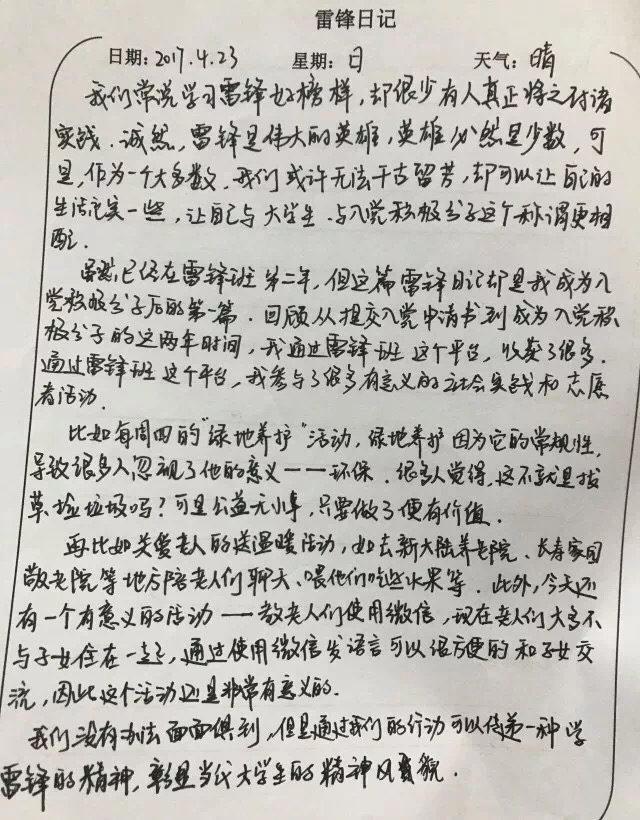 雷锋日记
日期：2017.4.23 星期：日 天气：晴
我们常说学习雷锋好榜样，却很少有人真正将之付诸
实践．诚然，雷锋是伟大的英雄，英雄必然是少数，可
是，作为一个大多数，我们或许无法千古留芳，却可以让自己的
生活充实一些，让自己与大学生、与入党积极分子这个称谓更相
配．
虽然已经在雷锋班第二年，但这篇雷锋日记却是我成为入
党积极分子后的第一篇．回顾从提交入党申请书到成为入党积
极分子的这两年时间，我通过雷锋班这个平台，收获了很多．
通过雷锋班这个平台，我参与了很多有意义的社会实践和志愿
者活动．
比如每周四的"绿地养护"活动，绿地养护因为它的常规性，
导致很多人忽视了他的意义——环保．很多人觉得，这不就是拔
草、捡垃圾吗？可是公益无小事，只要做了便有价值．
再比如关爱老人的送温暖活动，如去新大陆养老院、长寿家园
敬老院等地方陪老人们聊天、喂他们吃些水果等．此外，今天还
有一个有意义的活动——教老人们使用微信，现在老人们大多不
与子女住在一起，通过使用微信发语言可以很方便的和子女交
流，因此这个活动还是非常有意义的．
我们没有办法面面俱到，但是通过我们的行动可以传递一种学
雷锋的精神，彰显当代大学生的精神风貌．